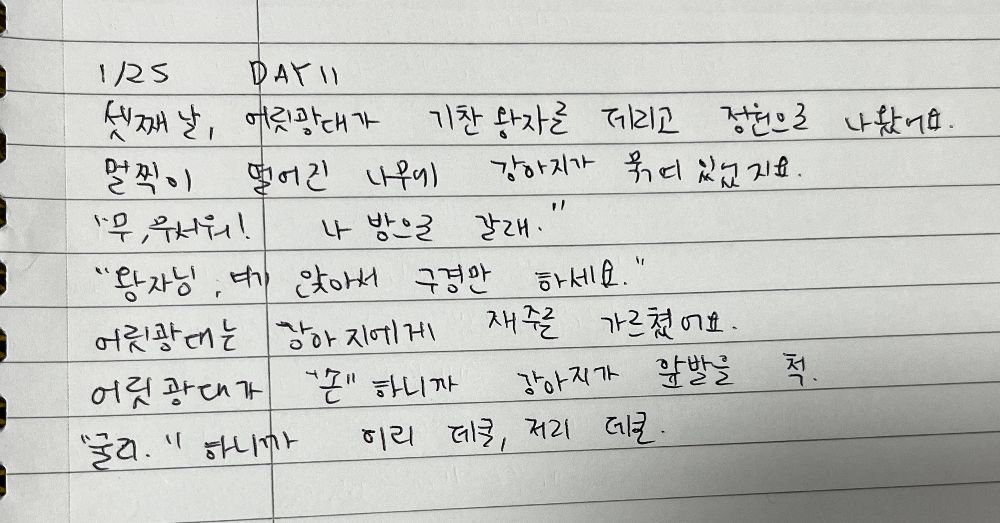 1/25 DAY 11
셋째 날, 어릿광대가 기찬 왕자를 데리고 정원으로 나왔어요.
멀찍이 떨어진 나무에 강아지가 묶여 있었지요.
"무, 무서워! 나 방으로 갈래."
"왕자님, 여기 앉아서 구경만 하세요."
어릿광대는 강아지에게 재주를 가르쳤어요.
어릿광대가 "손" 하니까 강아지가 앞발을 척.
"굴러." 하니까 이리 데굴, 저리 데굴.